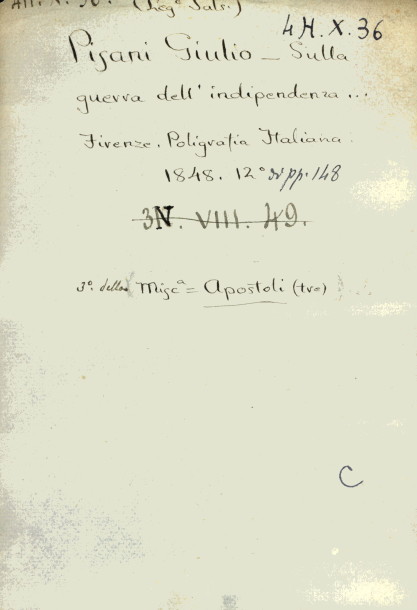 4H.X.36
Pisani Giulio – Sulla
guerra dell'indipendenza...
Firenze. Poligrafia Italiana.
1848. 12° di pp. 148
3N. VIII. 49.
3°. della Misc.ª = Apostoli (tre)
C